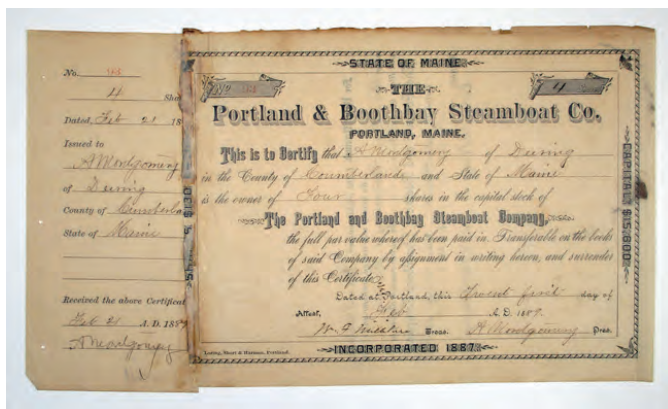 No. 165
4 Sha
Dated, Feb 21 18
Issued to
A Montgomery
of Deering
County of Cumberla
State of Maine
Received the above Certificat
Feb 21 A.D. 1889
A Montgomery
STATE OF MAINE
No 165
4
THE
Portland & Boothbay Steamboat Co.
PORTLAND, MAINE.
This is to Certify that A Montgomery of Deering
in the County of Cumberland and State of Maine
is the owner of Four shares in the capital stock of
The Portland and Boothbay Steamboat Company,
the full par value whereof has been paid in. Transferable on the books
of said Company by assignment in writing hereon, and surrender
of this Certificate.
Dated at Portland, this Twenty first day of
Attest, Feb A.D. 1889.
Treas. A Montgomery Pres.
Loring, Short & Harmon, Portland.
INCORPORATED 1887.
CAPITAL $15,600